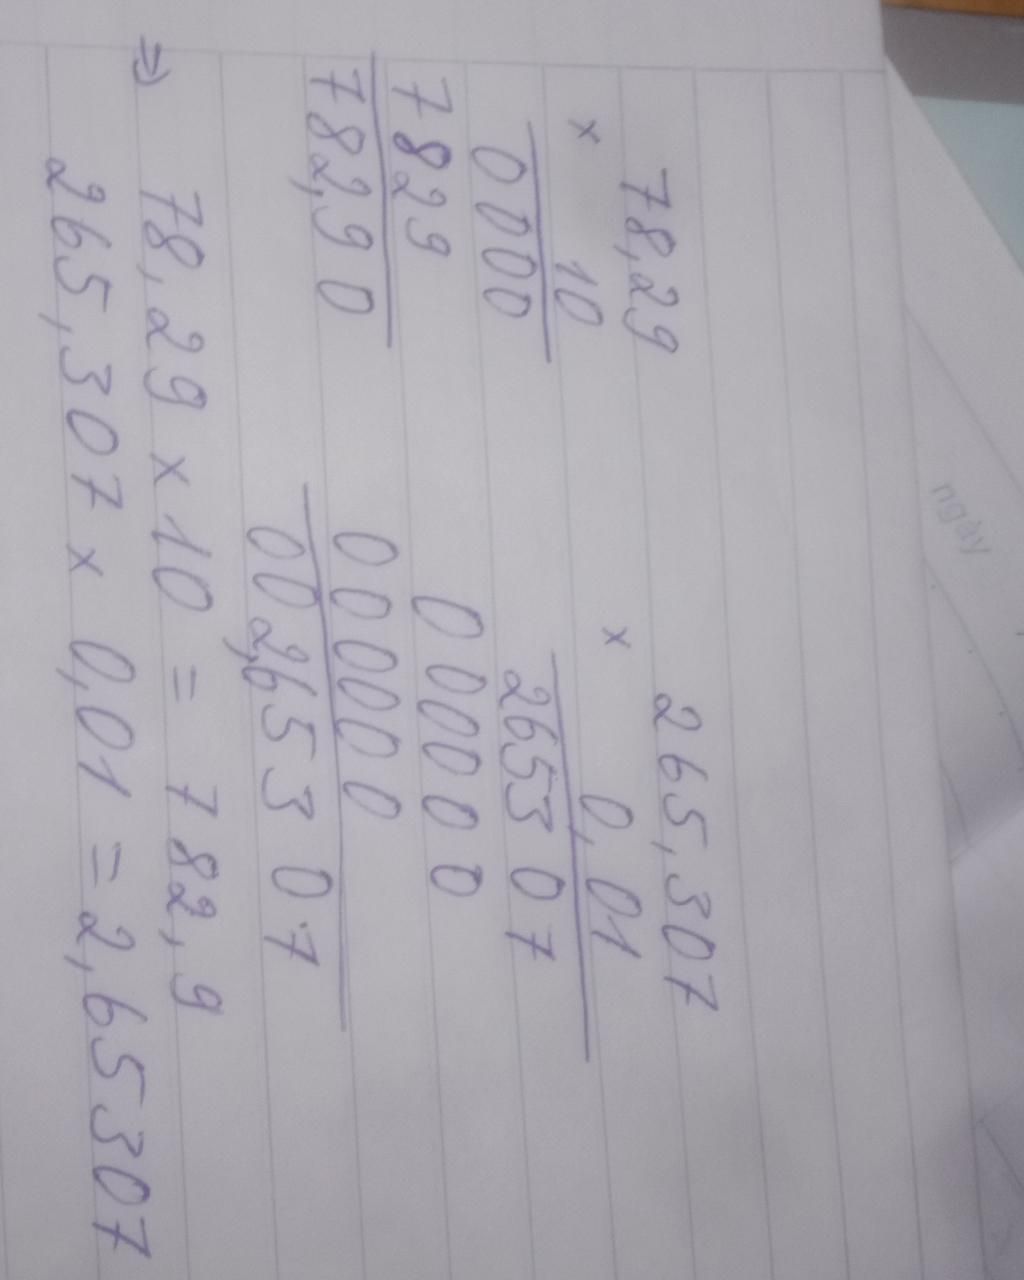 78,29
× 10
0000
7829
782,90
265,307
× 0,01
265307
000000
000000
002,65307
=> 78,29 × 10 = 782,9
265,307 × 0,01 = 2,65307
ngày